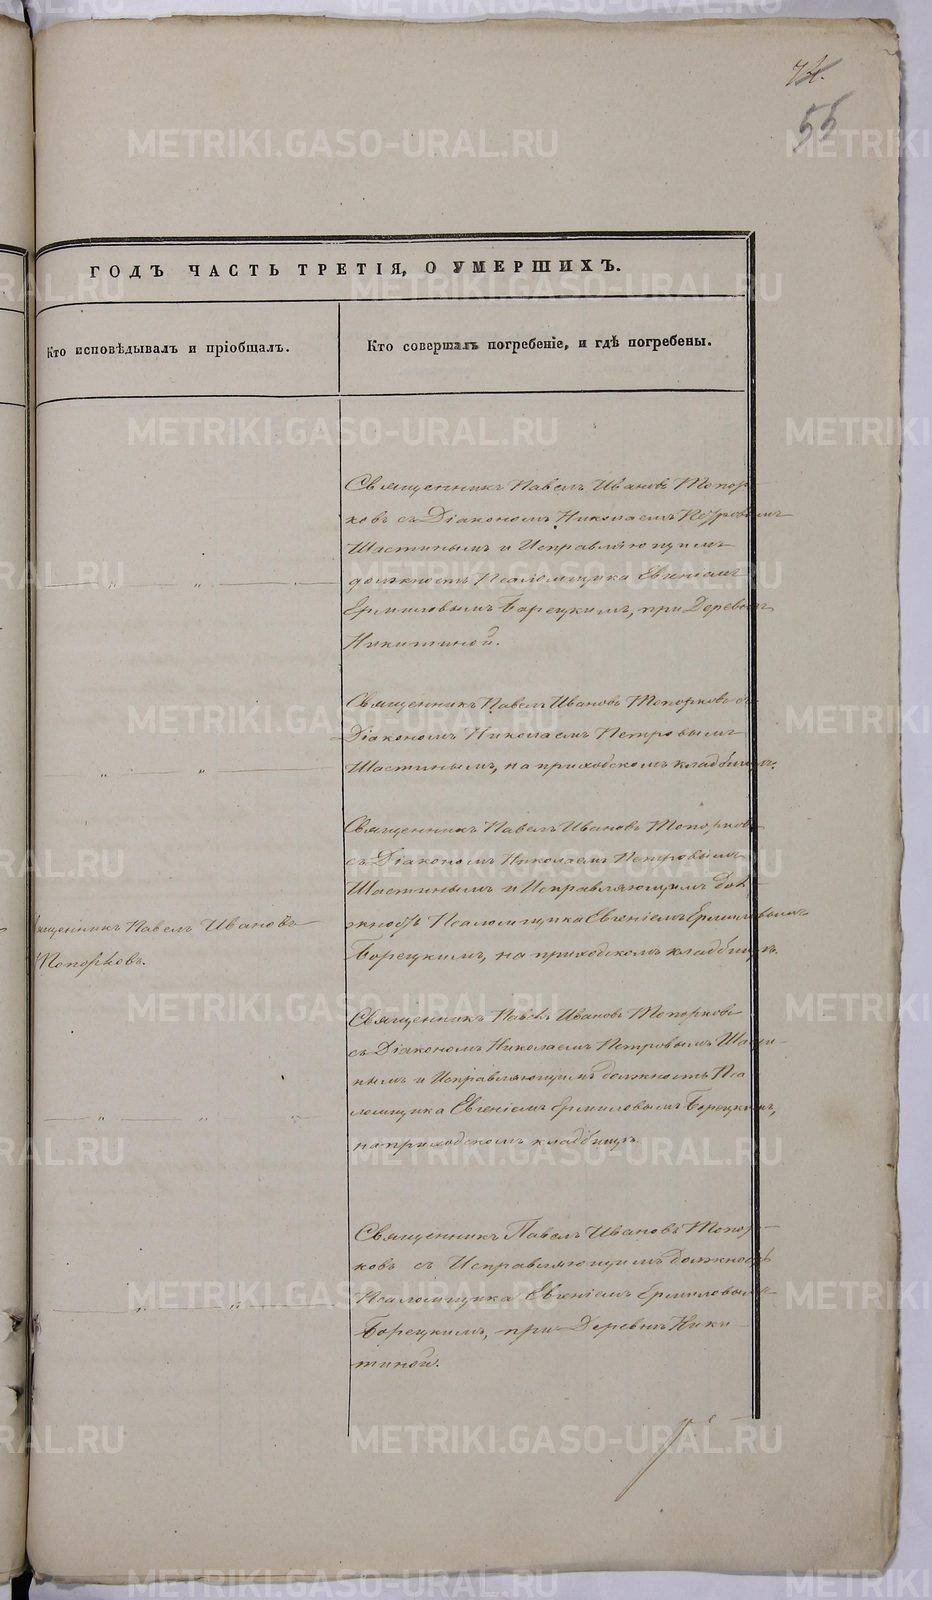 55
ГОДЪ ЧАСТЬ ТРЕТІЯ, О УМЕРШИХЪ.
Кто исповѣдывалъ и пріобщалъ.
Кто совершалъ погребеніе, и гдѣ погребены.
Священникъ Павелъ Ивановъ Топор-
ковъ съ Діакономъ Николаемъ Петровымъ
Шастинымъ и Исправляющимъ
должность Псаломщика Евгеніемъ
Ермиловымъ Борецкимъ, при Деревнѣ
Никитиной.
Священникъ Павелъ Ивановъ Топорковъ съ
Діакономъ Николаемъ Петровымъ
Шастинымъ, на приходскомъ кладбищѣ.
Священникъ Павелъ Ивановъ Топорковъ
съ Діакономъ Николаемъ Петровымъ
Шастинымъ и Исправляющимъ дол-
жность Псаломщика Евгеніемъ Ермиловымъ
Борецкимъ, на приходскомъ кладбищѣ.
щенникъ Павелъ Ивановъ
Топорковъ.
Священникъ Павелъ Ивановъ Топорковъ
съ Діакономъ Николаемъ Петровымъ Шасти-
нымъ и Исправляющимъ должность Пса
ломщика Евгеніемъ Ермиловымъ Борецкимъ,
на приходскомъ кладбищѣ.
Священникъ Павелъ Ивановъ Топор-
ковъ съ Исправляющимъ должность
Псаломщика Евгеніемъ Ермиловымъ
Борецкимъ, при Деревнѣ Ники-
тиной.
METRIKI.GASO-URAL.RU